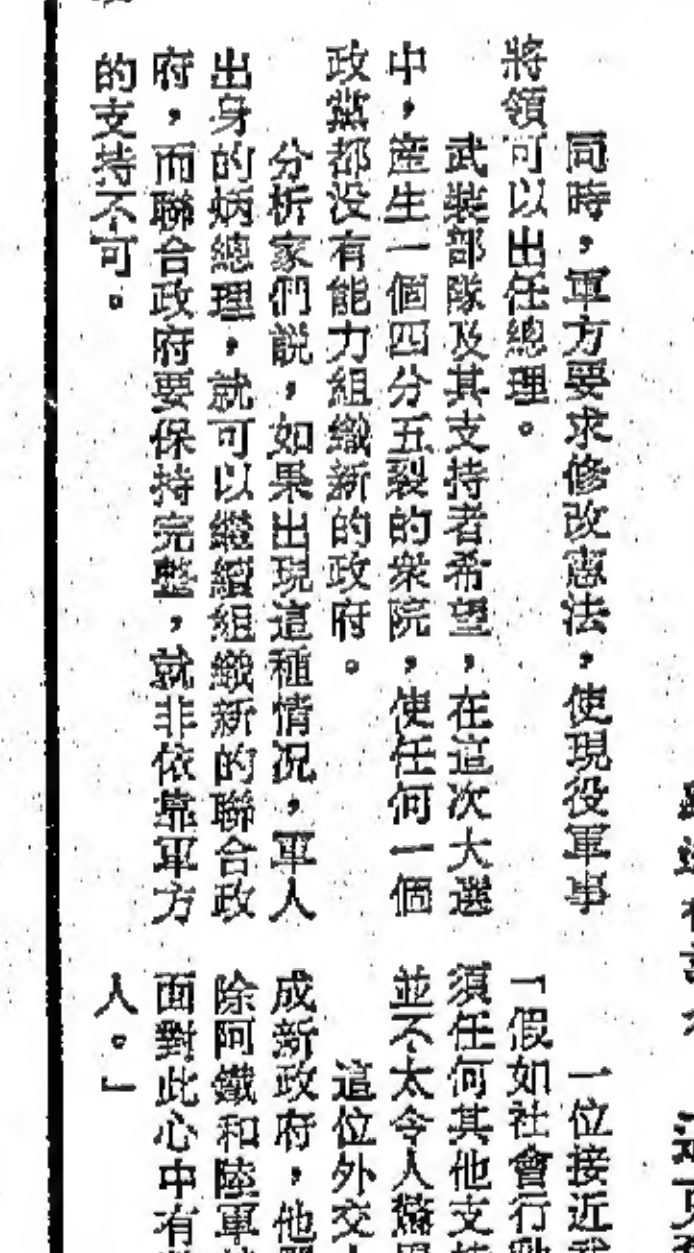 同時，軍方要求修改憲法，使現役軍事
將領可以出任總理。
武裝部隊及其支持者希望，在這次大選
中，產生一個四分五裂的衆院，使任何一個
政黨都没有能力組織新的政府。
分析家們説，如果出現這種情况，軍人
出身的炳總理，就可以繼續組織新的聯合政
府，而聯合政府要保持完整，就非依靠軍方
的支持不可。
一位接近
「假如社會行
須任何其他支
並不太令人
這位外交
成新政府，他
除阿鐵和陸軍
面對此心中有
人。」